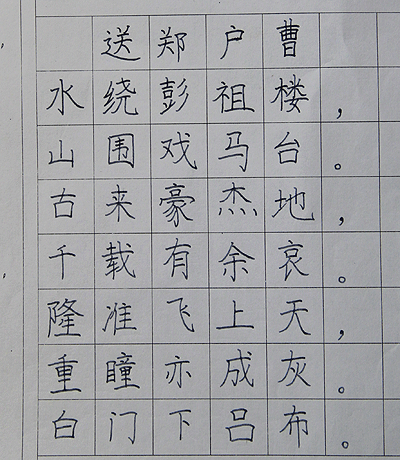 送郑户曹
水绕彭祖楼，
山围戏马台。
古来豪杰地，
千载有余哀。
隆准飞上天，
重瞳亦成灰。
白门下吕布。